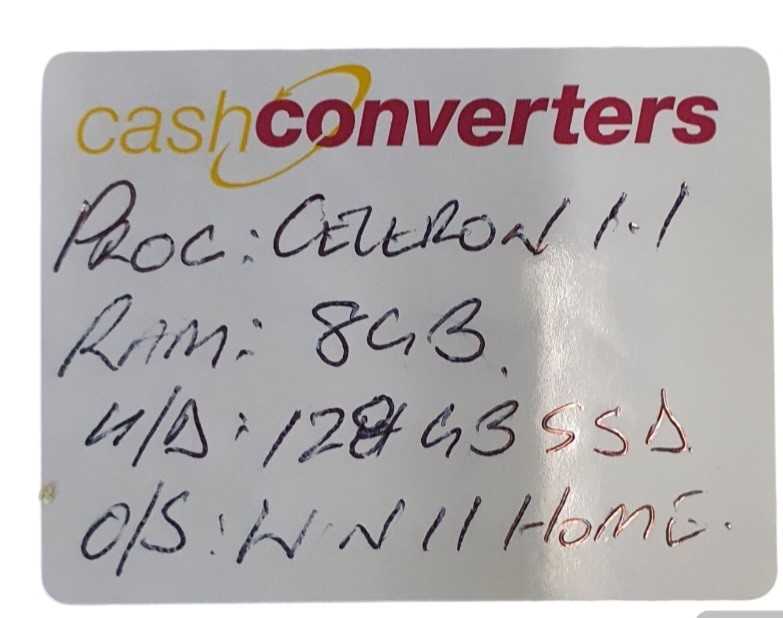 cashconverters
PROC: CELERON 1.1
RAM: 8GB.
H/D: 128GB SSD
O/S: WIN 11 HOME.